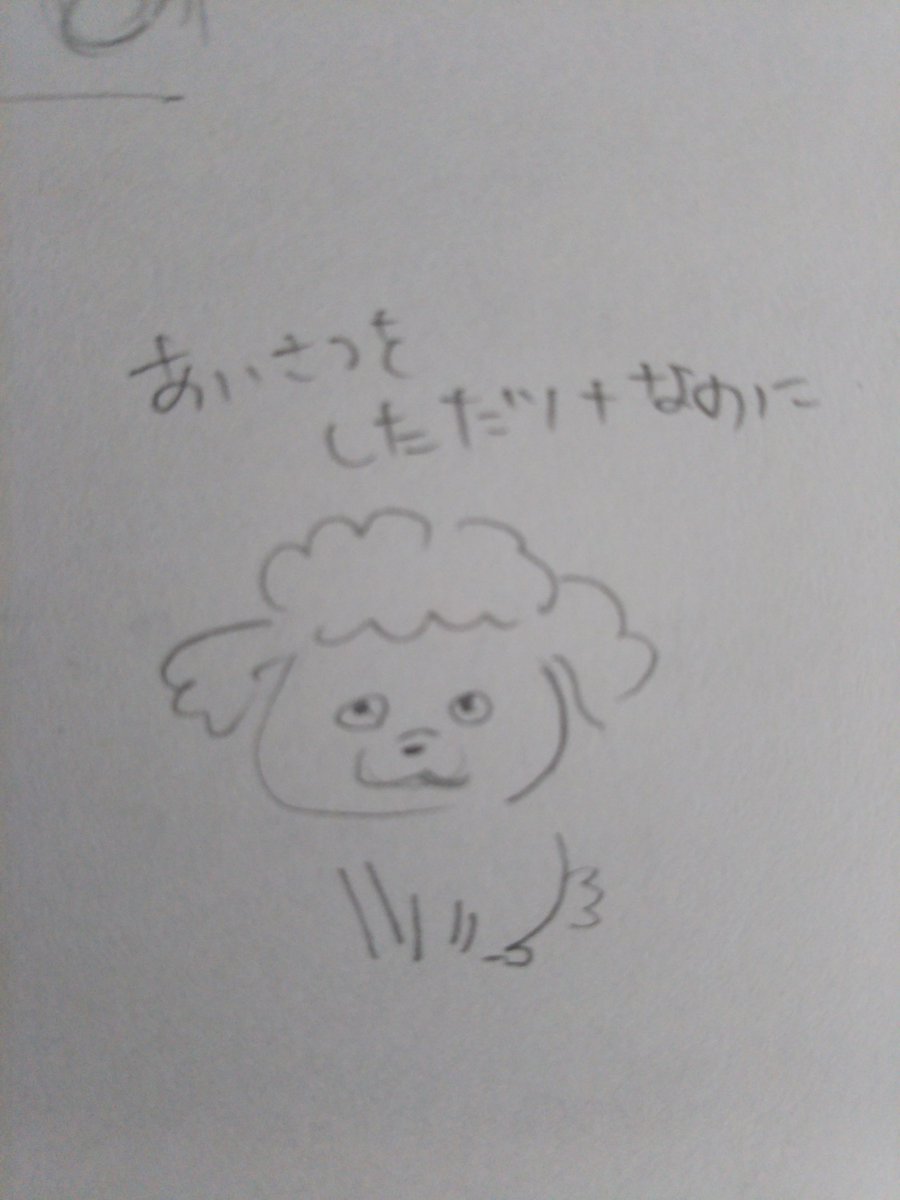 あいさつを
しただけなのに